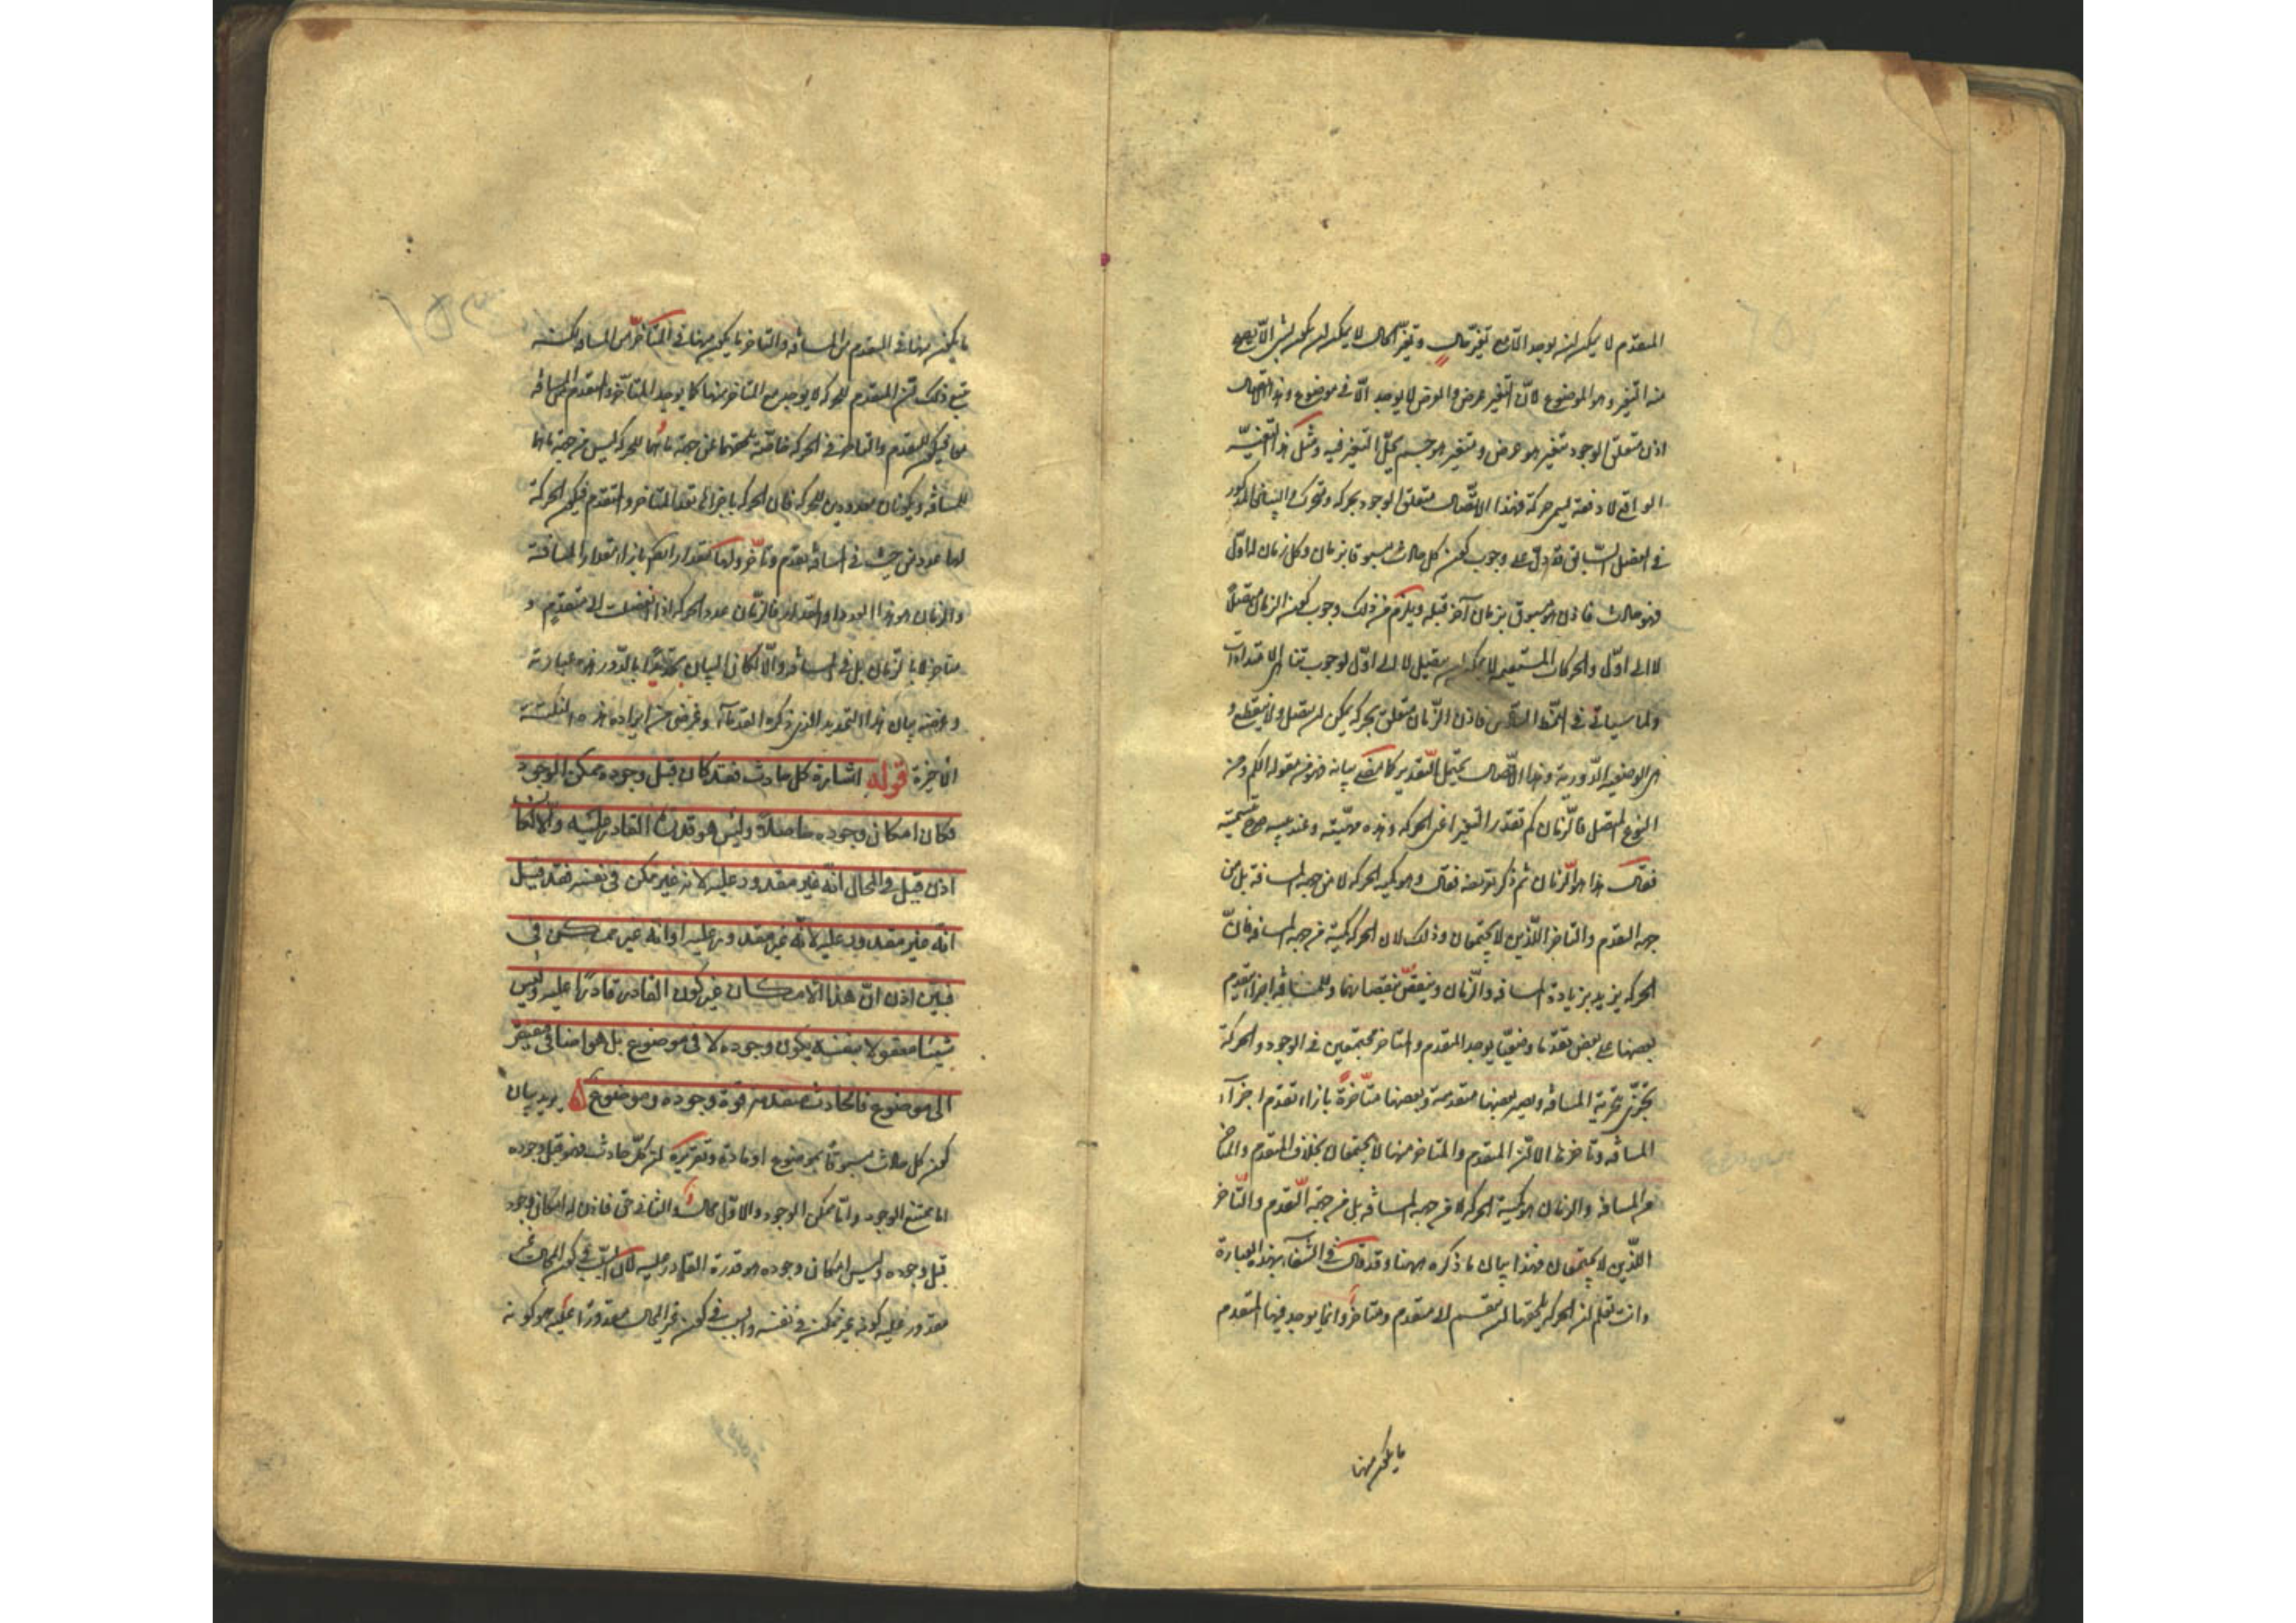 المتقدم لا يمكن ان يوجد الا مع تغير حال وتغير الحال لا يمكن ان يكون الا لشئ
منه التغير وهو الموضوع لان التغير عرض والعرض لا يوجد الا في موضوع وهذا الاتصال
اذن متعلق الوجود بتغير هو عرض ومتغير هو جسم يحل التغير فيه ومثل هذا التغير
الواقع لا دفعة يسمى حركة فهذا الاتصال متعلق الوجود بحركة ومتحرك والبيان المذكور
في الفصل السابق قد دل على وجوب كون كل حادث مسبوقا بزمان وكل زمان له اول
فهو حادث فاذن هو مسبوق بزمان آخر قبله ويلزم من ذلك وجوب كون الزمان متصلا
لا الى اول والحركات المستقيمة لا يمكن ان يتصل لا الى اول لوجوب تناهي الامتدادات
ولما سيأتي في النمط السادس فاذن الزمان متعلق بحركة يمكن ان يتصل ولا ينقطع و
هي الوضعية الدورية وهذا الاتصال يحتمل التقدير كما مضى بيانه فهو من مقولة الكم ومن
النوع المتصل فالزمان كم تقدر التغير اعني الحركة وهذه مهيته وعند بيانه صرح بتسميته
فقال هذا هو الزمان ثم ذكر تعريفه فقال وهو كمية الحركة لا من جهة المسافة بل من
جهة التقدم والتاخر اللذين لا يجتمعان وذلك لان الحركة كمية من جهة المسافة فان
الحركة يزيد بزيادة المسافة والزمان وينقص بنقصانهما وللمسافة اجزاء يتقدم
بعضها على بعض تقدما وضعيا يوجد المتقدم والمتاخر مجتمعين في الوجود والحركة
تتجزى بتجزية المسافة ويصير بعضها متقدمة وبعضها متاخرة بازاء تقدم اجزاء
المسافة وتاخرها الا ان المتقدم والمتاخر منها لا يجتمعان بخلاف المتقدم والمتاخر
من المسافة والزمان هو كمية الحركة لا من جهة المسافة بل من جهة التقدم والتاخر
اللذين لا يجتمعان فهذا بيان ما ذكره ههنا وقد قال في الشفاء بهذه العبارة
وانت تعلم ان الحركة يلحقها ان تنقسم الى متقدم ومتاخر وانما يوجد فيها المتقدم
ما يكون منها
ما يكون منها في المتقدم من المسافة والمتاخر ما يكون منها في المتاخر من المسافة لكنه
يتبع ذلك ان المتقدم للحركة لا يوجد مع المتاخر منها كما يوجد المتاخر والمتقدم في المسافة
معا فيكون للمتقدم والمتاخر في الحركة خاصة تلحقهما من جهة ما هما للحركة ليس من جهة ما هما
للمسافة ويكونان معدودين للحركة فان الحركة باجزائها تعد المتاخر والمتقدم فيكون الحركة
لها عدد من حيث في المسافة تقدم وتاخر ولها مقدار ايضا بازاء مقدار المسافة
والزمان هو هذا العدد او المقدار فالزمان عدد الحركة اذا انفصلت الى متقدم و
متاخر لا بالزمان بل في المسافة والا لكان البيان تحديدا بالدور هذه عبارته
وغرضه بيان هذا التحديد الذي ذكره القدماء وغرضي من ايراده هذه النكتة
الاخيرة قوله اشارة كل حادث فقد كان قبل وجوده ممكن الوجود
فكان امكان وجوده حاصلا وليس هو قدرة القادر عليه والا لكان
اذن قيل في المحال انه غير مقدور عليه لانه غير ممكن في نفسه فقد قيل
انه غير مقدور عليه لانه غير مقدور عليه او انه غير ممكن في
فبين اذن ان هذا الامكان غير كون القادر قادرا عليه وليس
شيئا معقولا بنفسه يكون وجوده لا في موضوع بل هو اضافي فيفتقر
الى موضوع فالحادث يتقدمه قوة وجوده وموضوع ۵ يريد بيان
كون كل حادث مسبوقا بموضوع او مادة وتقريره ان كل حادث فهو قبل وجوده
اما ممتنع الوجود واما ممكن الوجود والاول محال والثاني حق فاذن له امكان وجود
قبل وجوده وليس امكان وجوده هو قدرة القادر عليه لان السبب في كون المحال غير
مقدور عليه كونه غير ممكن في نفسه والسبب في كون غير المحال مقدورا عليه هو كونه